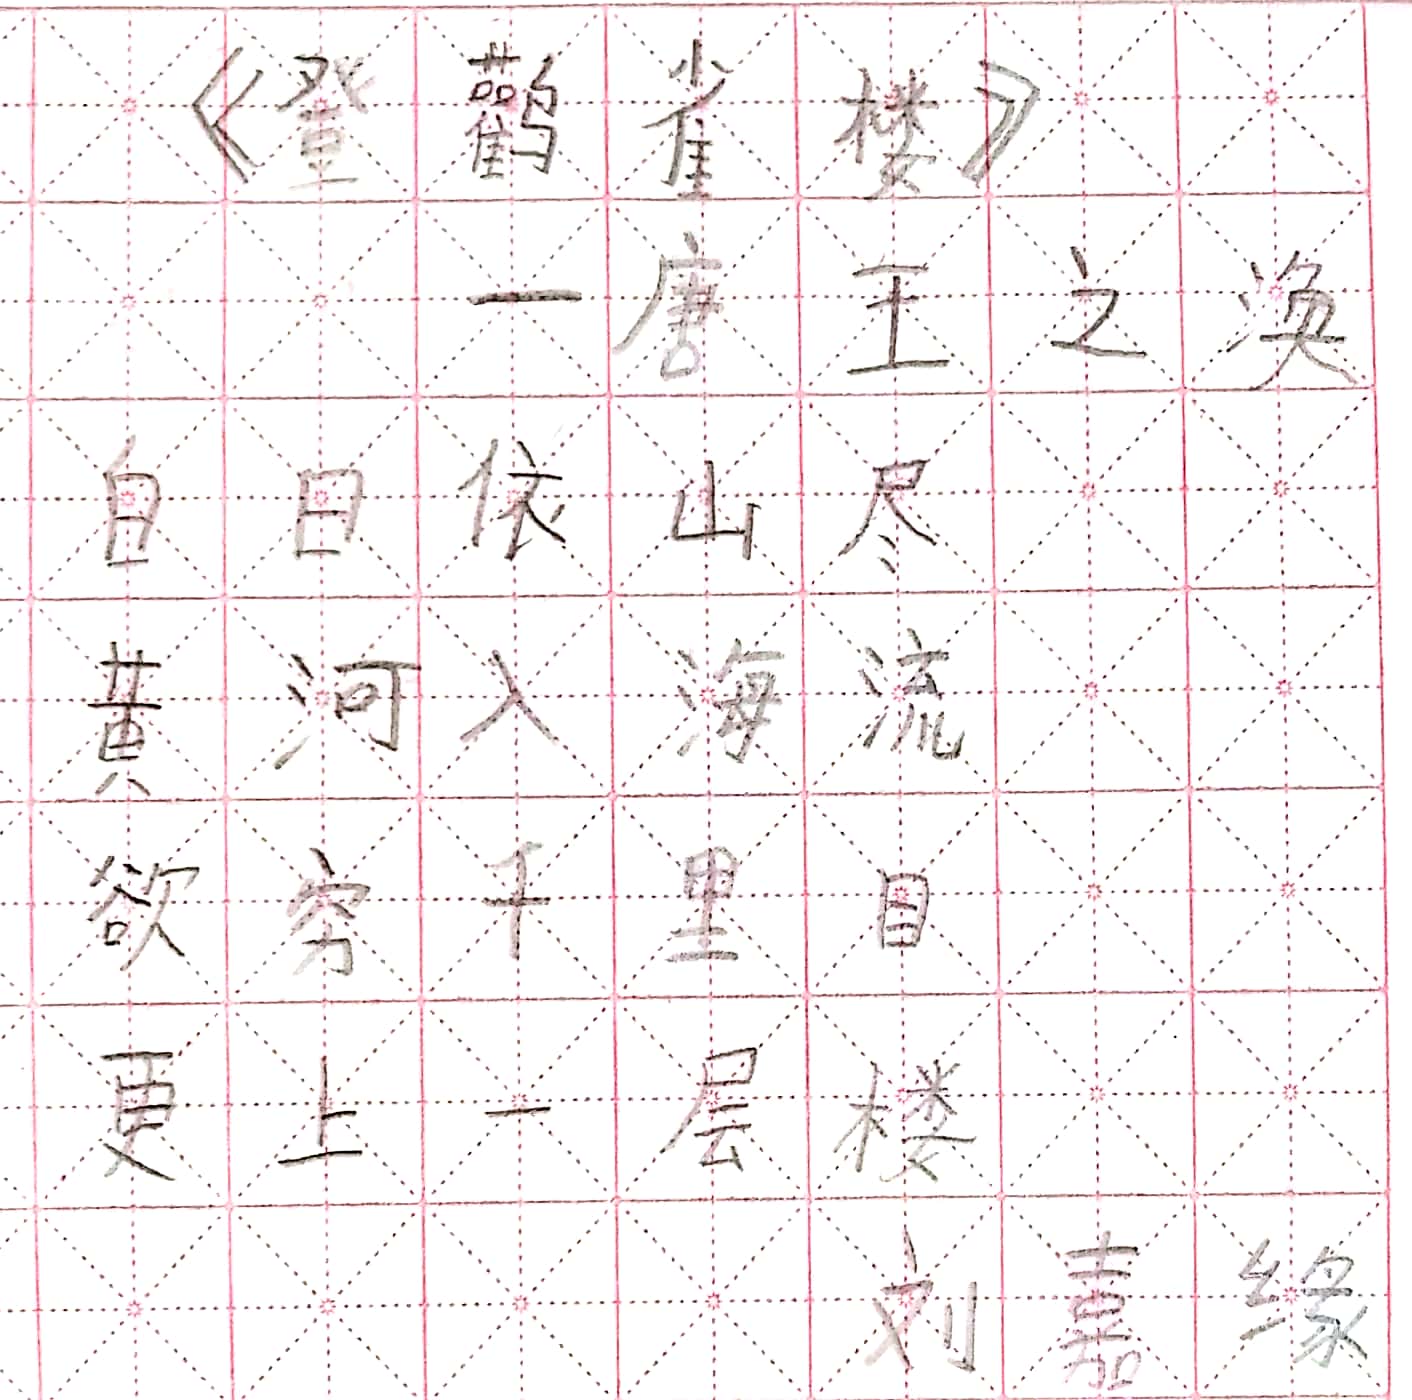 《登鹳雀楼》
一唐王之涣
白日依山尽
黄河入海流
欲穷千里目
更上一层楼
刘嘉缘